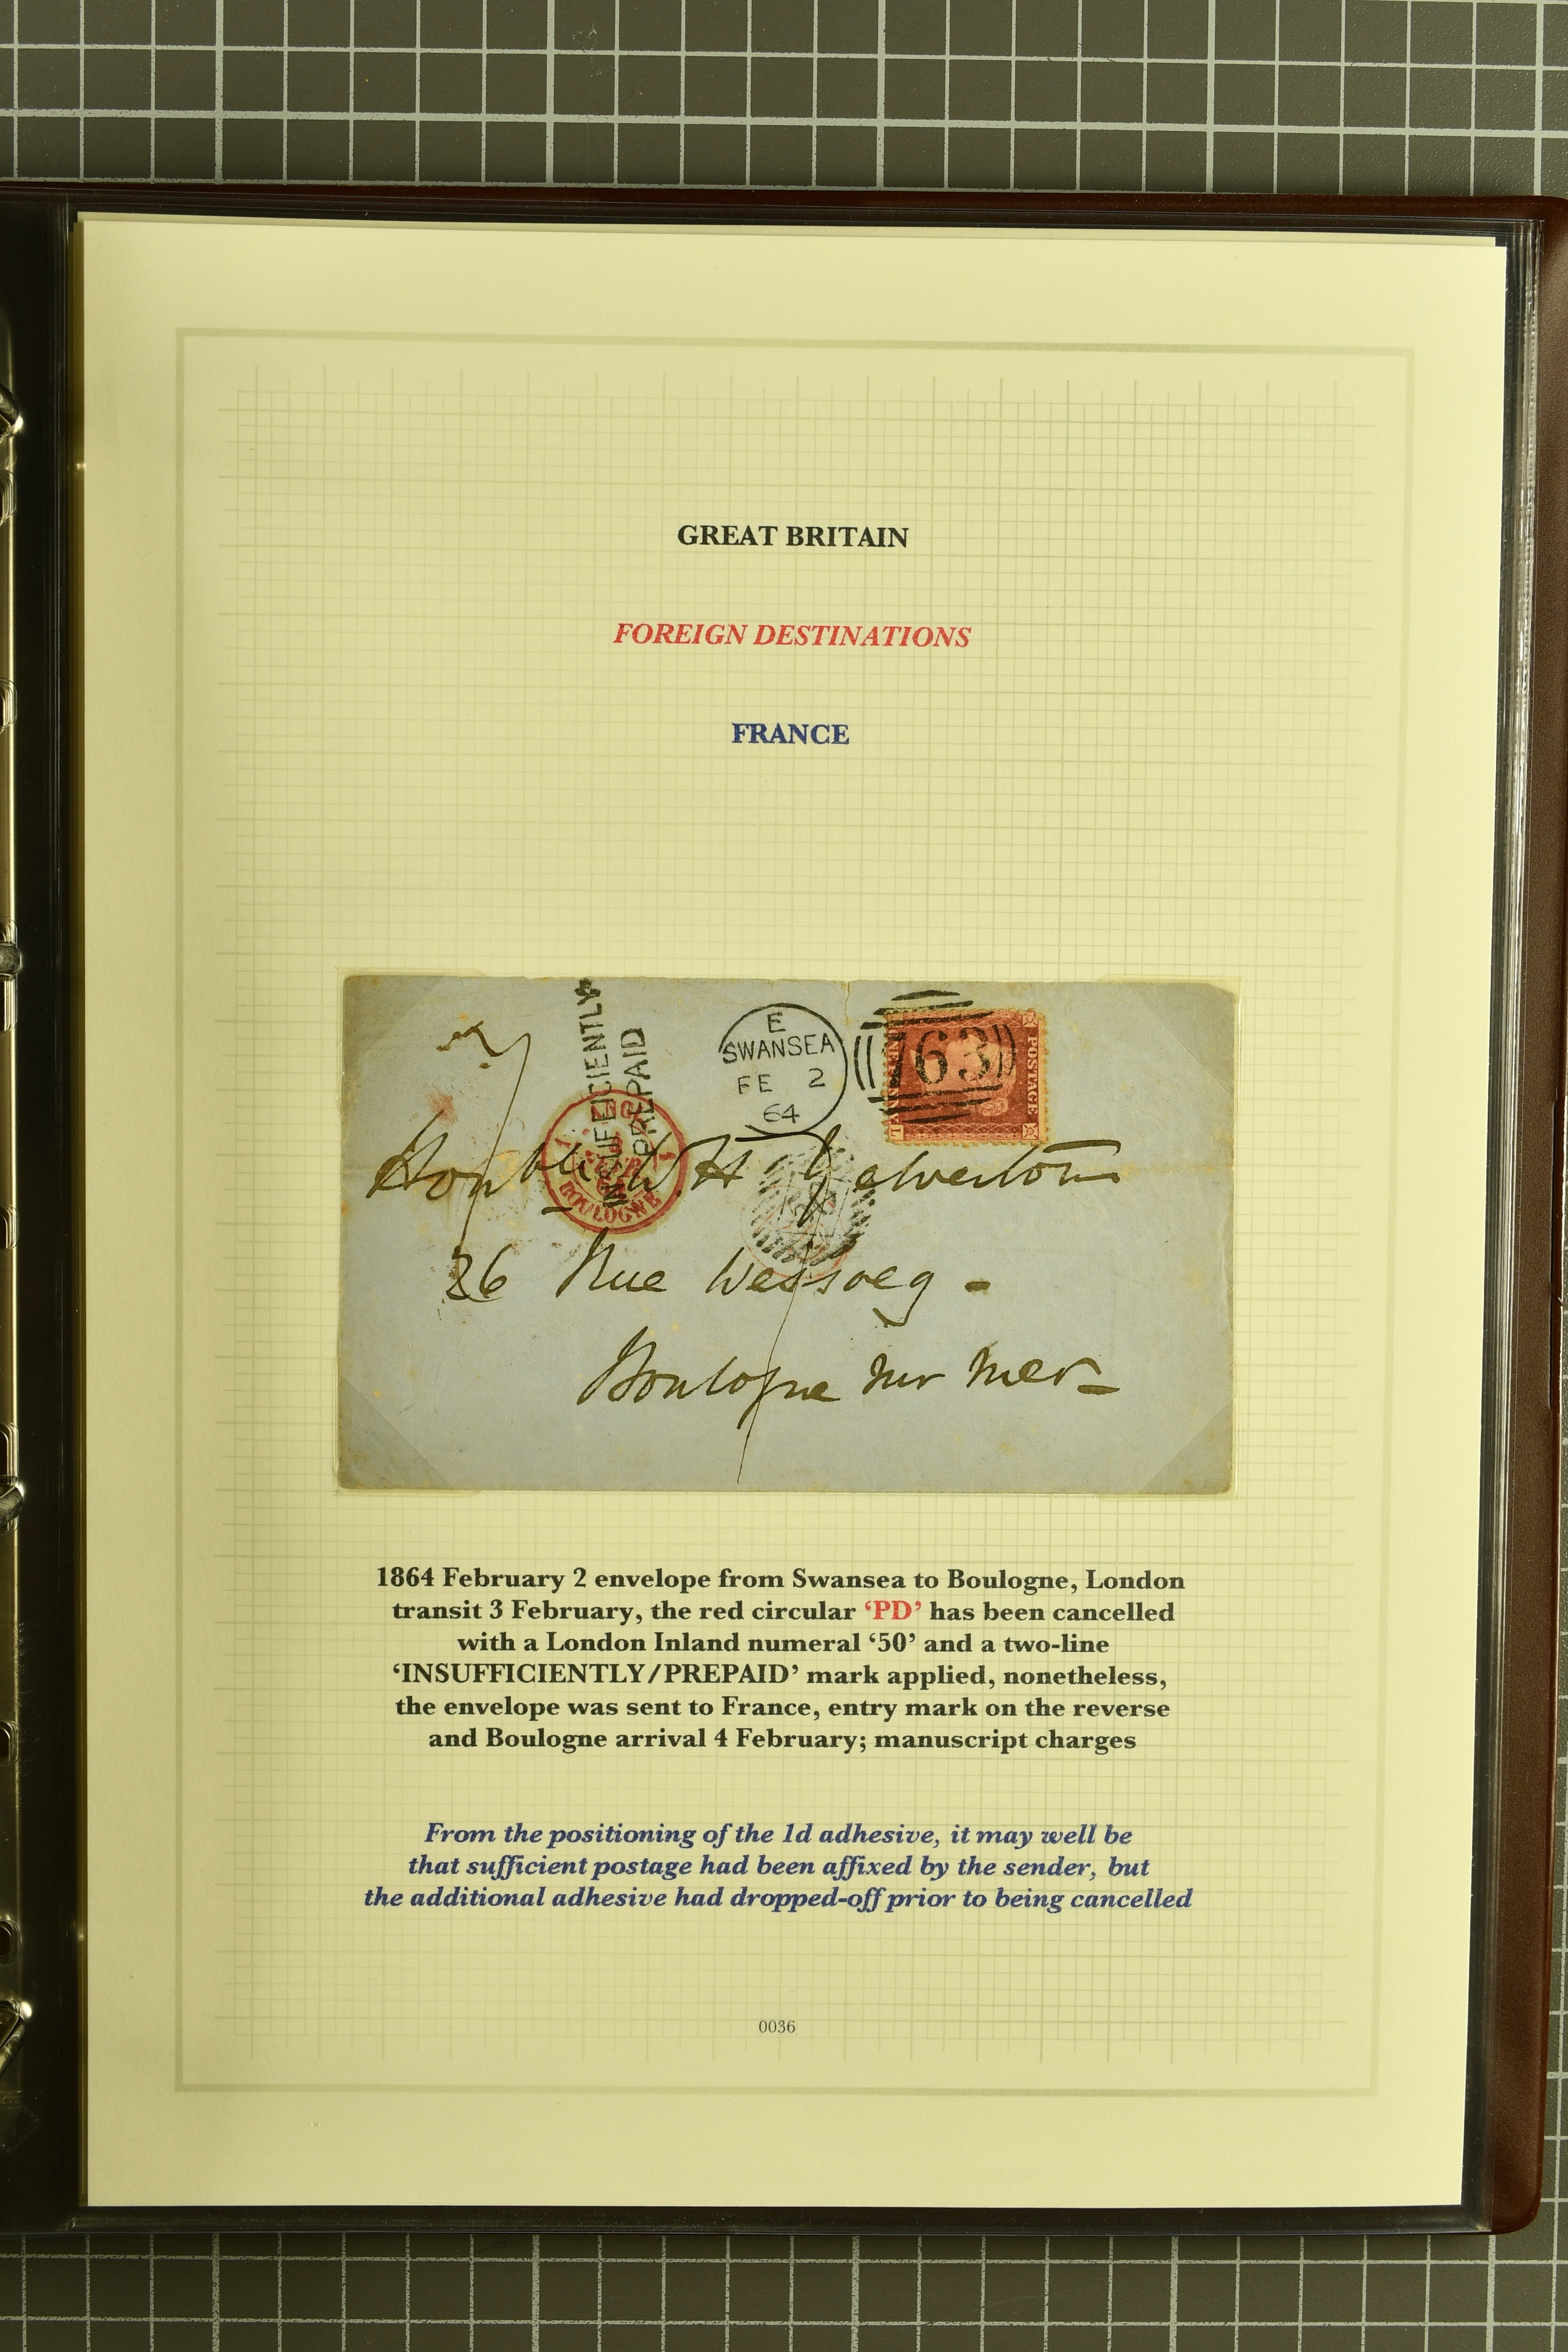 GREAT BRITAIN
FOREIGN DESTINATIONS
FRANCE
INSUFFICIENTLY
PREPAID
E
SWANSEA
FE 2
64
763
POSTAGE
BOULOGNE
Honble W. H Yelverton
36 Rue
Boulogne sur Mer
1864 February 2 envelope from Swansea to Boulogne, London
transit 3 February, the red circular ‘PD’ has been cancelled
with a London Inland numeral ‘50’ and a two-line
‘INSUFFICIENTLY/PREPAID’ mark applied, nonetheless,
the envelope was sent to France, entry mark on the reverse
and Boulogne arrival 4 February; manuscript charges
From the positioning of the 1d adhesive, it may well be
that sufficient postage had been affixed by the sender, but
the additional adhesive had dropped-off prior to being cancelled
0036